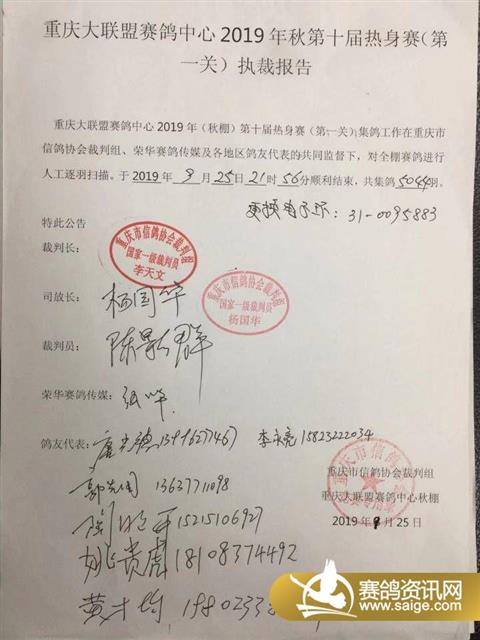 重庆大联盟赛鸽中心 2019 年秋第十届热身赛（第
一关）执裁报告
重庆大联盟赛鸽中心 2019 年（秋棚）第十届热身赛（第一关）集鸽工作在重庆市
信鸽协会裁判组、荣华赛鸽传媒及各地区鸽友代表的共同监督下，对全棚赛鸽进行
人工逐羽扫描。于 2019 年 9 月 25 日 21 时 56 分顺利结束，共集鸽 5044 羽。
更换电子环：31-0095883
特此公告
裁判长：
重庆市信鸽协会裁判组
国家一级裁判员
李天文
司放长：杨国华
重庆市信鸽协会裁判组
国家一级裁判员
杨国华
裁判员：陈
荣华赛鸽传媒：张
鸽友代表： 李永亮 15823222034
郭 13637711098
15215106927
胡贵虎 18108374492
黄
重庆市信鸽协会裁判组
重庆大联盟赛鸽中心秋棚
2019 年 9 月 25 日
赛鸽资讯网
www.saige.com